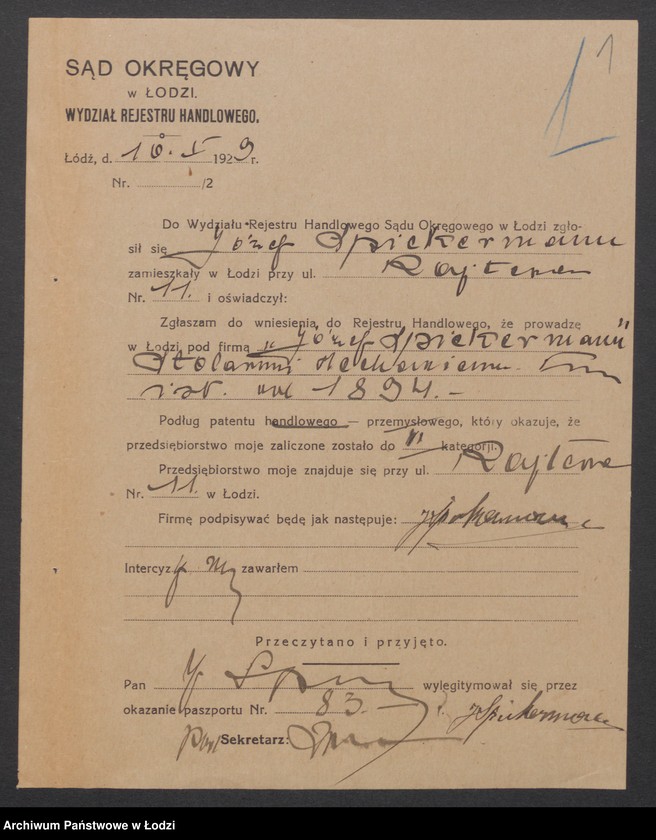 1
SĄD OKRĘGOWY
w ŁODZI.
WYDZIAŁ REJESTRU HANDLOWEGO.
Łódź, d. 10. V 1929 r.
Nr. /2
Do Wydziału Rejestru Handlowego Sądu Okręgowego w Łodzi zgło-
sił się Józef Spickermann
zamieszkały w Łodzi przy ul. Rajtera
Nr. 11. i oświadczył:
Zgłaszam do wniesienia do Rejestru Handlowego, że prowadzę
w Łodzi pod firmą „Józef Spickermann"
Stolarnia Mechaniczna
ist. od 1894. -
Podług patentu handlowego — przemysłowego, który okazuje, że
przedsiębiorstwo moje zaliczone zostało do VI kategorji.
Przedsiębiorstwo moje znajduje się przy ul. Rajtera
Nr. 11. w Łodzi.
Firmę podpisywać będę jak następuje: JSpickermann
Intercyzy nie zawarłem
Przeczytano i przyjęto.
Pan J. wylegitymował się przez
okazanie paszportu Nr. 83. JSpickermann
Sekretarz:
Archiwum Państwowe w Łodzi